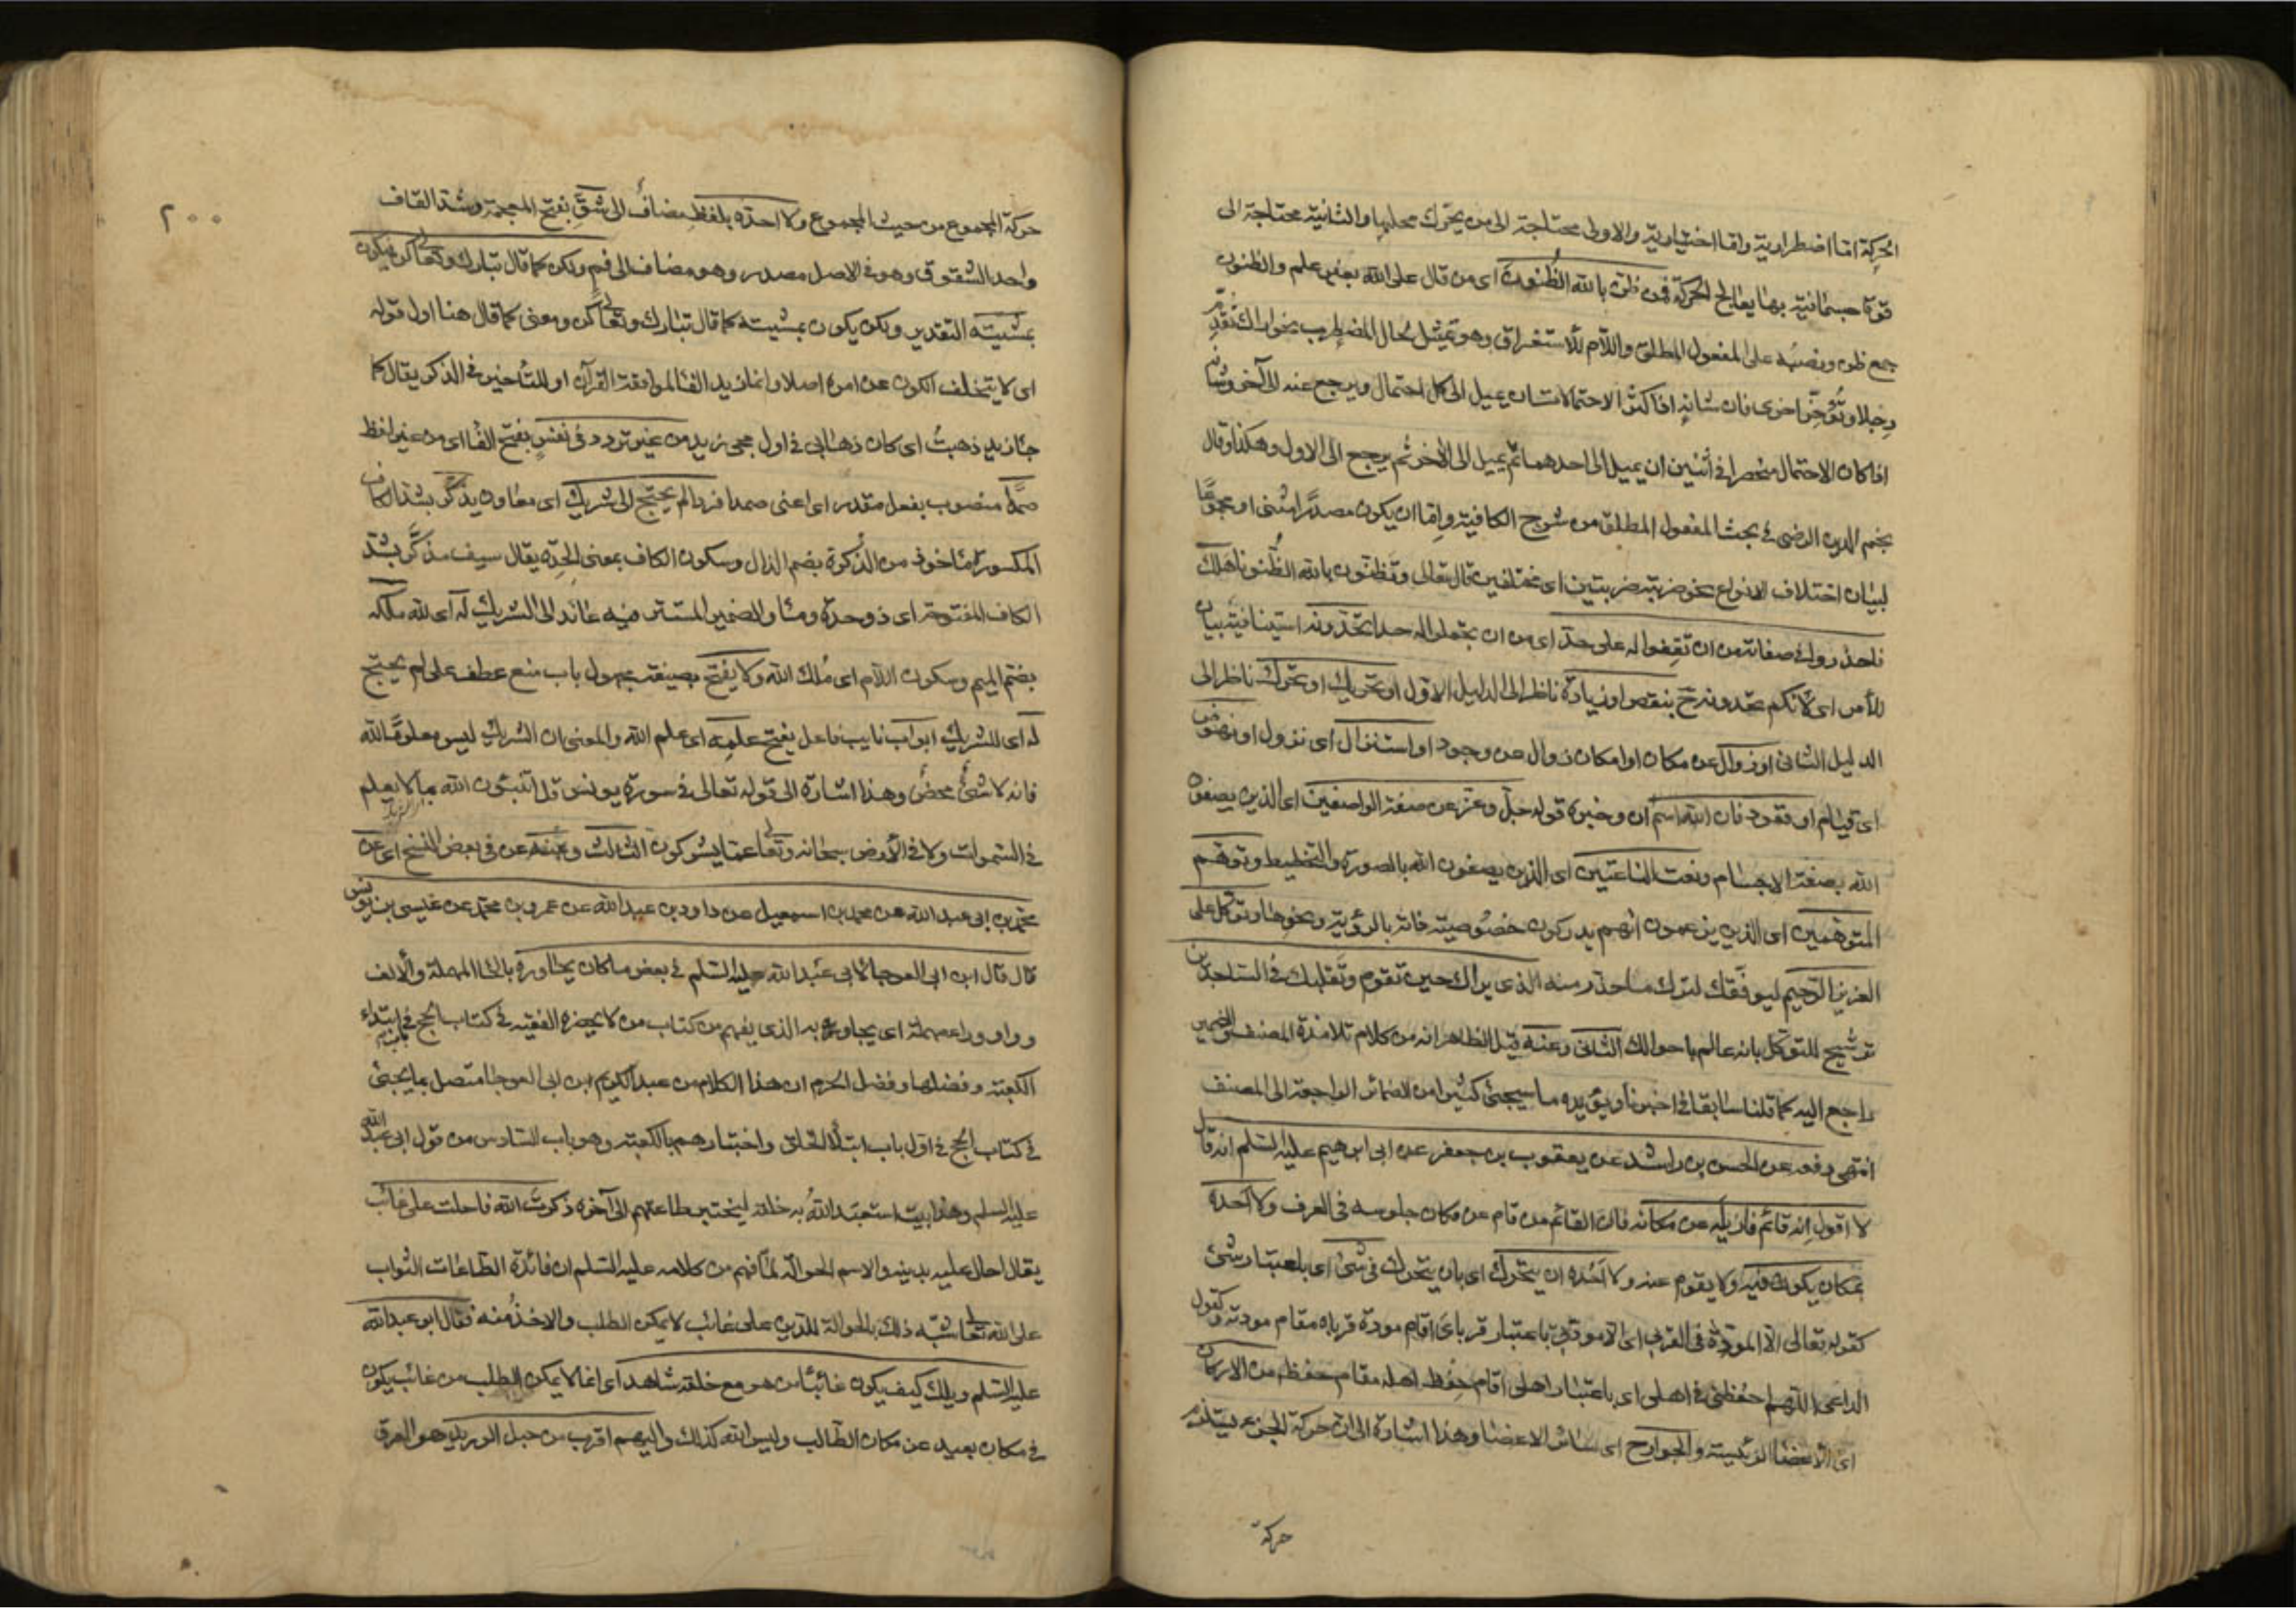 الحركة اما اضطرارية واما اختيارية والاولى محتاجة الى من يحرك محلها والثانية محتاجة الى
قوة جسمانية بها يعالج الحركة فمن ظن بالله الظنون اى من قال على الله بغير علم والظنون
جمع ظن ونصبه على المفعول المطلق واللام للاستغراق وهو تمثيل لحال المضطرب نحو اراك تقدم
رجلا وتؤخر اخرى فان شانه اذا كثر الاحتمالات ان يميل الى كل احتمال ويرجع عنه الى آخر
اذا كان الاحتمال منحصرا فى اثنين ان يميل الى احدهما ثم يميل الى الآخر ثم يرجع الى الاول وهكذا وقال
نجم الدين الرضى فى بحث المفعول المطلق من شرح الكافية واما ان يكون مصدرا مثنى او مجموعا
لبيان اختلاف الانواع نحو ضربته ضربتين اى مختلفين قال تعالى وتظنون بالله الظنونا هلك
فاحذروا فى صفاته من ان تقفوا له على حد اى من ان تجعلوا له حدا تحدونه استينافية بيان
للأمر اى لانكم تحدونه بنقص او زيادة ناظر الى الدليل الاول او تحريك او تحرك ناظر الى
الدليل الثانى او زوال عن مكان او امكان زوال عن وجود او استنزال اى نزول او نهوض
اى قيام او قعود فان الله اسم ان وخبره قوله جل وعز عن صفة الواصفين اى الذين يصفون
الله بصفة الاجسام ونعت الناعتين اى الذين يصفون الله بالصورة والتخطيط وتوهم
المتوهمين اى الذين يزعمون انهم يدركون خصوصية ذاته بالرؤية ونحوها وتوكل على
العزيز الرحيم ليوفقك لترك ما حذر منه الذى يراك حين تقوم وتقلبك فى الساجدين
ترشيح للتوكل بانه عالم باحوالك الثانى وعنه قيل الظاهر انه من كلام تلامذة المصنف والضمير
راجع اليه كما قلنا سابقا فى اخبرنا ويؤيده ما سيجئ كثيرا من الضمائر الراجعة الى المصنف
انتهى رفعه عن الحسن بن راشد عن يعقوب بن جعفر عن ابى ابرهيم عليه السلم انه قال
لا اقول انه قائم فازيله عن مكانه فان القائم من قام عن مكان جلوسه فى العرف ولا احده
بمكان يكون فيه ولا يقوم عنه ولا احده ان يتحرك اى بان يتحرك فى شئ اى باعتبار شئ
كقوله تعالى الا المودة فى القربى اى الا مودتى باعتبار قرباى اقام مودة قرباه مقام مودته وكقول
الداعى اللهم احفظنى فى اهلى اى باعتبار اهلى اقام حفظ اهله مقام حفظه من الاركان
اى الاعضا الرئيسة والجوارح اى سائر الاعضا وهذا اشارة الى ان حركة الجزء يستلزم
حركة
٢٠٠
حركة المجموع من حيث المجموع ولا احده بلفظ مضاف الى شق بفتح المعجمة وشد القاف
واحد الشقوق وهو فى الاصل مصدر وهو مضاف الى فم ولكن كما قال تبارك وتعالى كن فيكون
بمشيته التقدير ولكن يكون بمشيته كما قال تبارك وتعالى كن ومعنى كما قال هنا اول قوله
اى لا يتخلف الكون عن امره اصلا وانما زيد الفا لموافقة القرآن او للتأخير فى الذكر يقال كما
جاء زيد ذهبت اى كان ذهابى فى اول مجى زيد من غير تردد فى نفس بفتح الفا اى من غير لفظ
صمدا منصوب بفعل مقدر اى اعنى صمدا فردا لم يحتج الى شريك اى معاون يذكر بشد الكاف
المكسورة ماخوذ من الذكرة بضم الذال وسكون الكاف بمعنى الحدة يقال سيف مذكر بشد
الكاف المفتوحة اى ذو حدة وما والضمير المستتر فيه عائد الى الشريك له اى لله ملكه
بضم الميم وسكون اللام اى ملك الله ولا يفتح بصيغة مجهول باب منع عطف على لم يحتج
له اى للشريك ابواب نايب فاعل يفتح علمه اى علم الله والمعنى ان الشريك ليس معلوما لله
فانه لا شئ محض وهذا اشارة الى قوله تعالى فى سورة يونس قل اتنبئون الله بما لا يعلم
فى السموات ولا فى الارض سبحانه وتعالى عما يشركون الثالث وعنه عن فى بعض النسخ اى عن
محمد بن ابى عبد الله عن محمد بن اسمعيل عن داود بن عبد الله عن عمرو بن محمد عن عيسى بن يونس
قال قال ابن ابى العوجا لابى عبد الله عليه السلم فى بعض ما كان يحاوره بالحا المهملة والالف
وواو ورا مهملة اى يجاوبه الذى يفهم من كتاب من لا يحضره الفقيه فى كتاب الحج فى ابتداء
الكعبة وفضلها وفضل الحرم ان هذا الكلام من عبد الكريم ابن ابى العوجا متصل بما يجئ
فى كتاب الحج فى اول باب ابتلا الخلق واختبارهم بالكعبة وهو باب السادس من قول ابى عبد الله
عليه السلم وهذا بيت استعبد الله به خلقه ليختبر طاعتهم الى آخره ذكرت الله فاحلت على غائب
يقال احال عليه بدينه والاسم الحوالة لما فهم من كلامه عليه السلم ان فائدة الطاعات الثواب
على الله تعالى شبه ذلك بالحوالة للدين على غائب لا يمكن الطلب والاخذ منه فقال ابو عبد الله
عليه السلم ويلك كيف يكون غائبا من هو مع خلقه شاهد اى انما لا يمكن الطلب من غائب يكون
فى مكان بعيد عن مكان الطالب وليس الله كذلك واليهم اقرب من حبل الوريد هو العرق